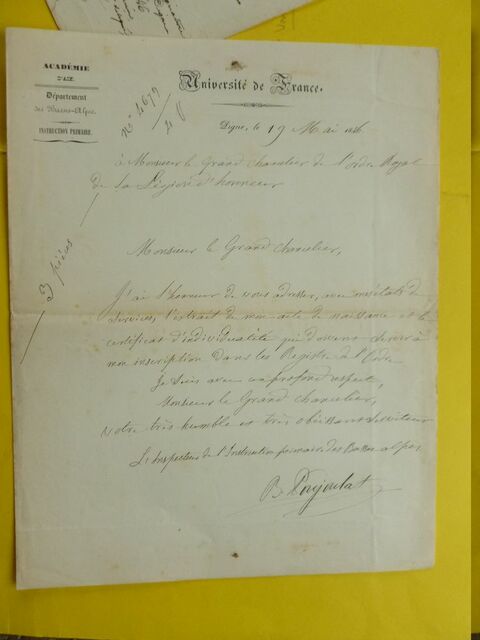 ACADÉMIE
D'AIX.
Département
des Basses-Alpes.
INSTRUCTION PRIMAIRE.
Université de France.
N° 4679
Digne, le 19 Mai 1846
à Monsieur le Grand chancelier de l'ordre Royal
de la Légion d'honneur
3 pièces
Monsieur le Grand chancelier,
J'ai l'honneur de vous adresser, avec mes états de
services, l'extrait de mon acte de naissance et le
certificat d'individualité qui doivent servir à
mon inscription dans les Registre de l'Ordre
Je suis avec un profond respect,
Monsieur le Grand chancelier,
Votre très humble et très obéissant serviteur
L'inspecteur de l'Instruction primaire des Basses alpes
B. Poujoulat